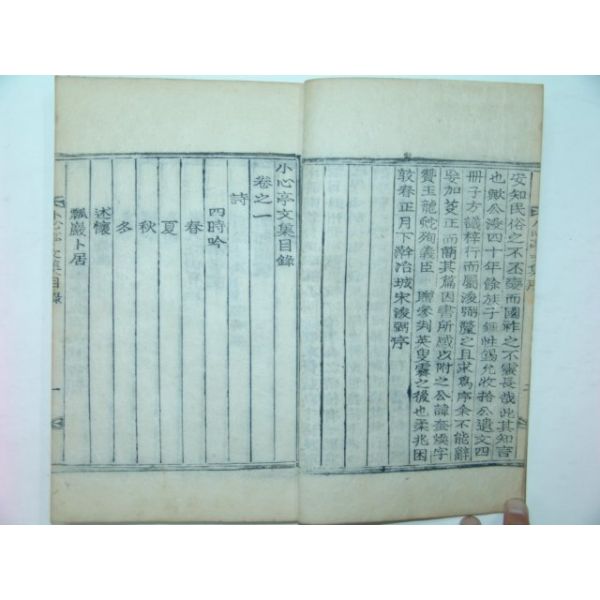 安知民俗之不丕變而國祚之不靈長哉此其知言
也歟公沒四十年餘族子錫允收拾公遺文四
冊子方議梓行而屬浚弼釐之且求爲序余不能辭
妄加芟正而簡其篇因書所感以附之公諱奎煥字
贊玉龍蛇殉義臣 贈參判英叟雲之後也柔兆困
敦春正月下澣冶城宋浚弼序
小心亭文集目錄
卷之一
詩
四時吟
春
夏
秋
冬
述懷
瓢巖卜居
小心亭文集目錄
一